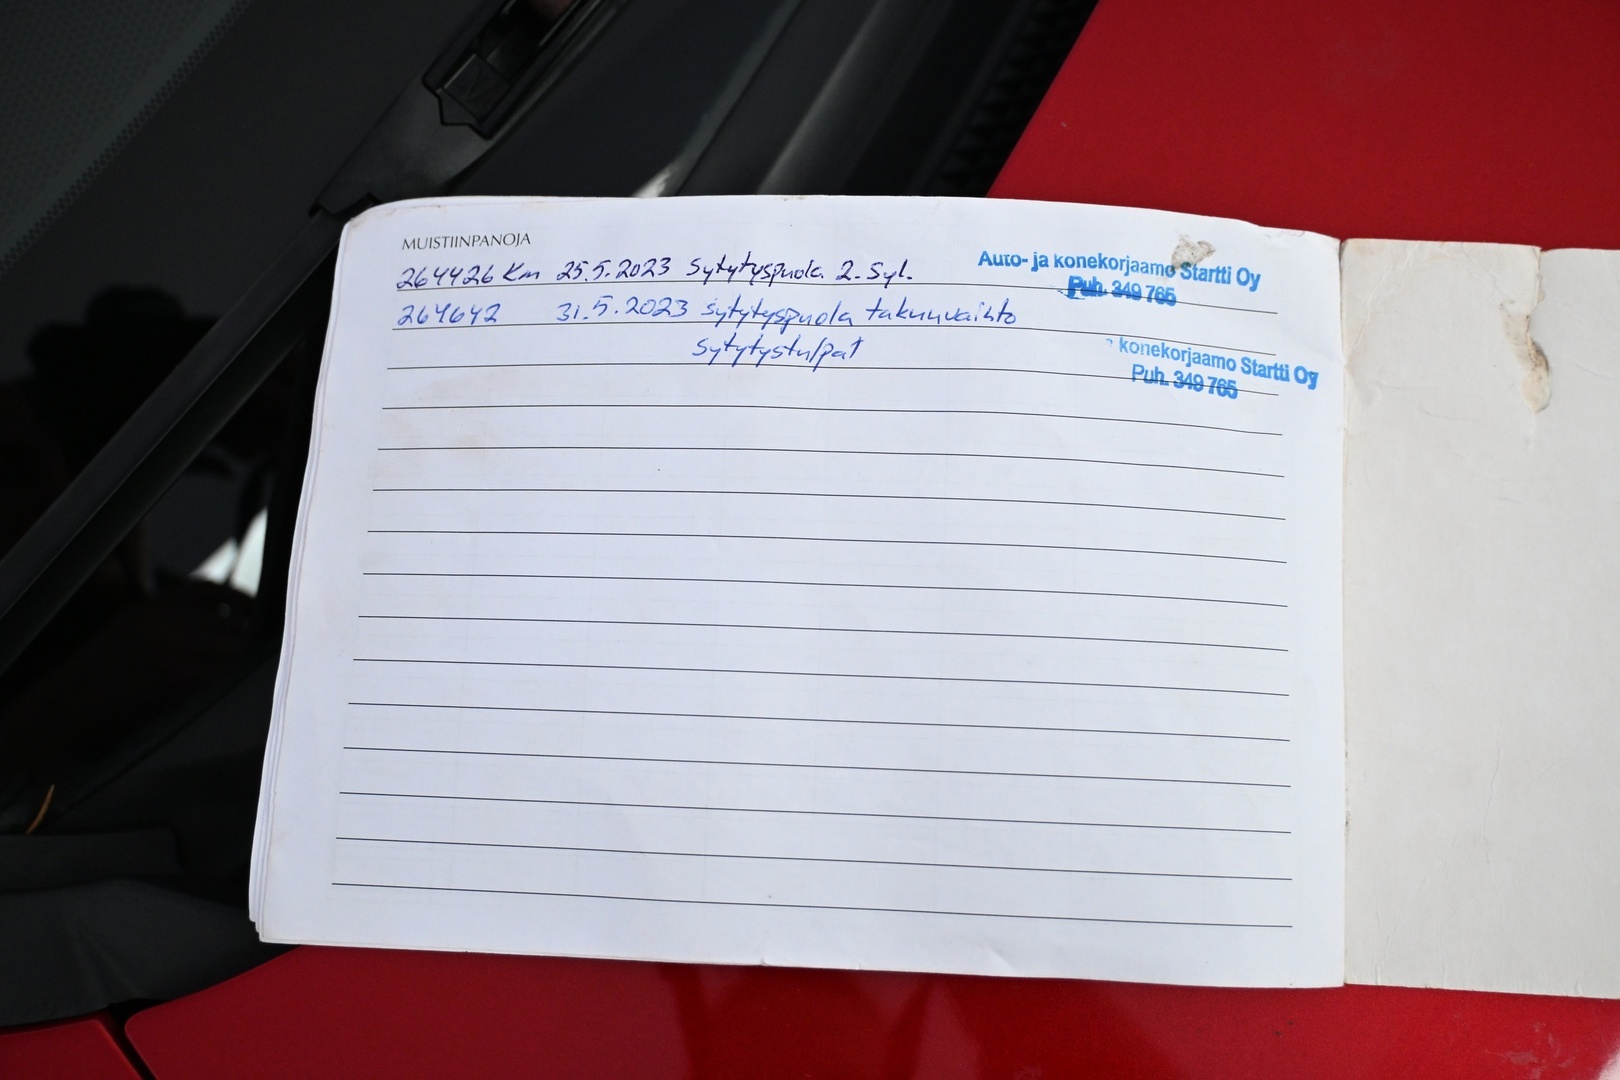 MUISTIINPANOJA
264426 Km 25.5.2023 Sytytyspuola. 2. Syl.
Auto- ja konekorjaamo Startti Oy
Puh. 349 765
264642 31.5.2023 Sytytyspuola takuuvaihto
Sytytystulpat
konekorjaamo Startti Oy
Puh. 349 765